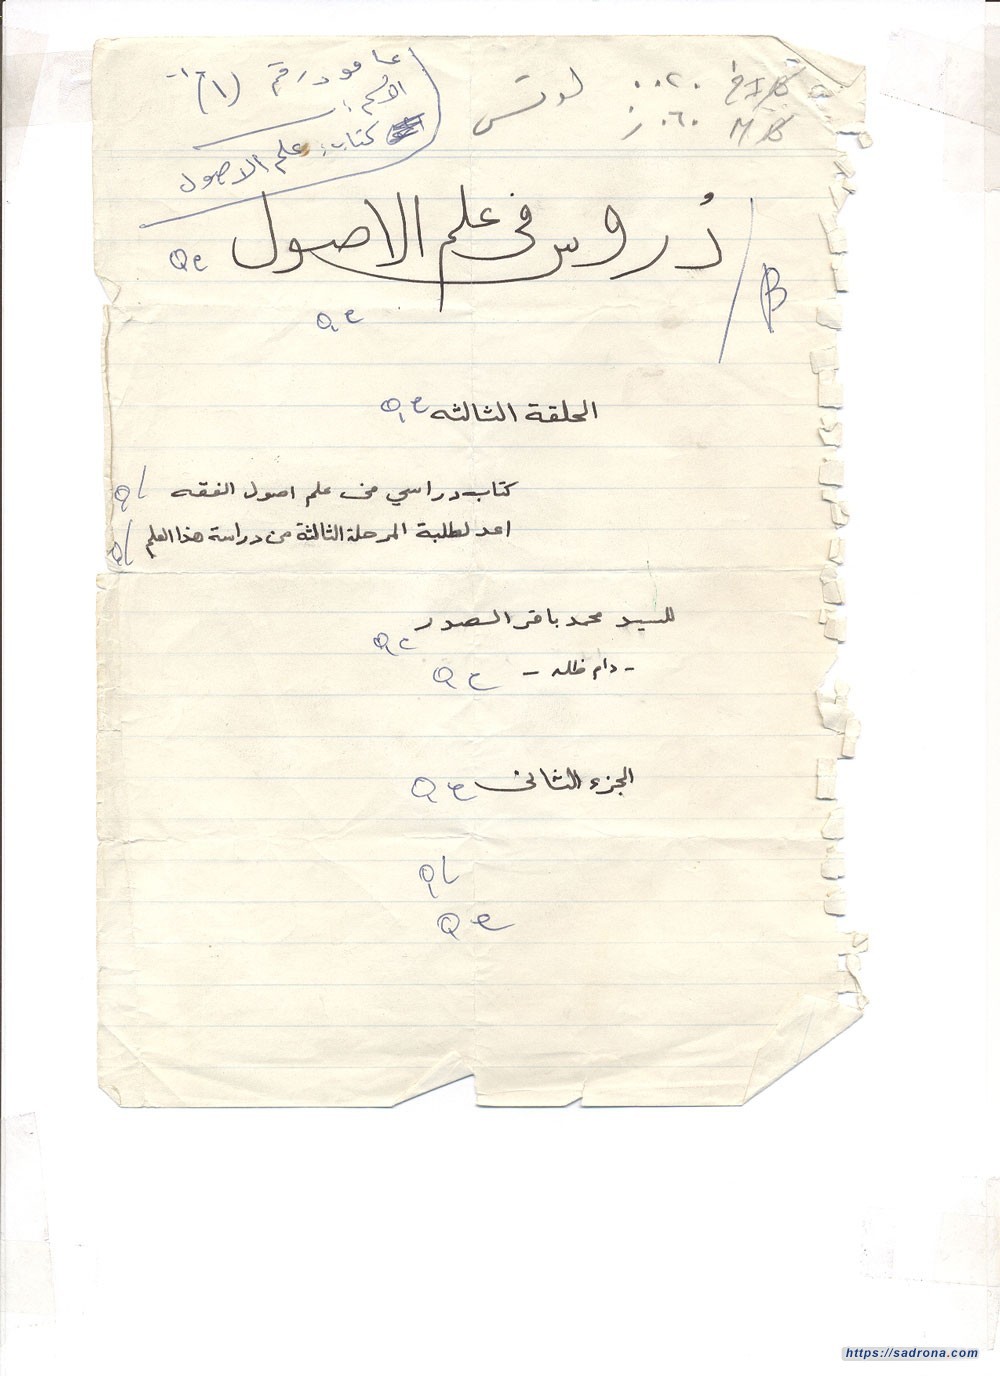 عامود رقم (١)
الاسم:
كتاب: علم الاصول
لوتس
دُروس في علم الاصول
Qe
β
Qe
الحلقة الثالثه Qe
كتاب دراسي في علم اصول الفقه
اعد لطلبة المرحلة الثالثة من دراسة هذا العلم
للسيد محمد باقر الصدر
Qe
- دام ظله -
Qe
الجزء الثاني Qe
QL
Qe
https://sadrona.com